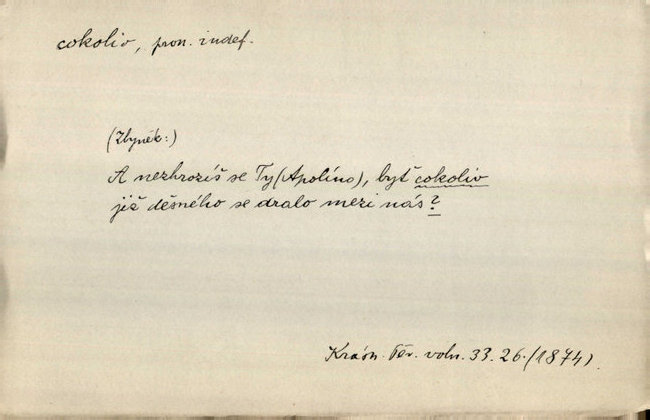 cokoliv, pron. indef.
(Zbyněk:)
A nezhrozíš se Ty (Apolíno), byť cokoliv
již děsného se dralo mezi nás?
Krásn. Ter. voln. 33. 26. (1874).